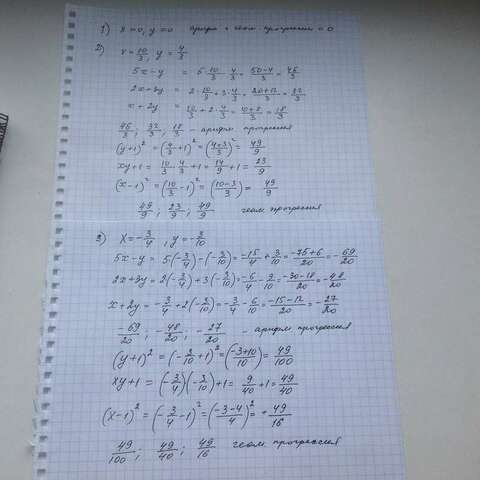 1) x=0, y=0 арифм + геом прогрессия = 0
2) x=10/3, y=4/3
5x-y = 5·10/3 - 4/3 = 50-4/3 = 46/3
2x+3y = 2·10/3 + 3·4/3 = 20+12/3 = 32/3
x+2y = 10/3 + 2·4/3 = 10+8/3 = 18/3
46/3; 32/3; 18/3 - арифм прогрессия
(y+1)² = (4/3+1)² = (4+3/3)² = 49/9
xy+1 = 10/3·4/3+1 = 14/9+1 = 23/9
(x-1)² = (10/3-1)² = (10-3/3)² = 49/9
49/9; 23/9; 49/9 геом прогрессия
3) x=-3/4, y=-3/10
5x-y = 5(-3/4)-(-3/10) = -15/4+3/10 = -75+6/20 = -69/20
2x+3y = 2(-3/4)+3(-3/10) = -6/4-9/10 = -30-18/20 = -48/20
x+2y = -3/4+2(-3/10) = -3/4-6/10 = -15-12/20 = -27/20
-69/20; -48/20; -27/20 - арифм прогрессия
(y+1)² = (-3/10+1)² = (-3+10/10)² = 49/100
xy+1 = (-3/4)(-3/10)+1 = 9/40+1 = 49/40
(x-1)² = (-3/4-1)² = (-3-4/4)² = +49/16
49/100; 49/40; 49/16 геом прогрессия